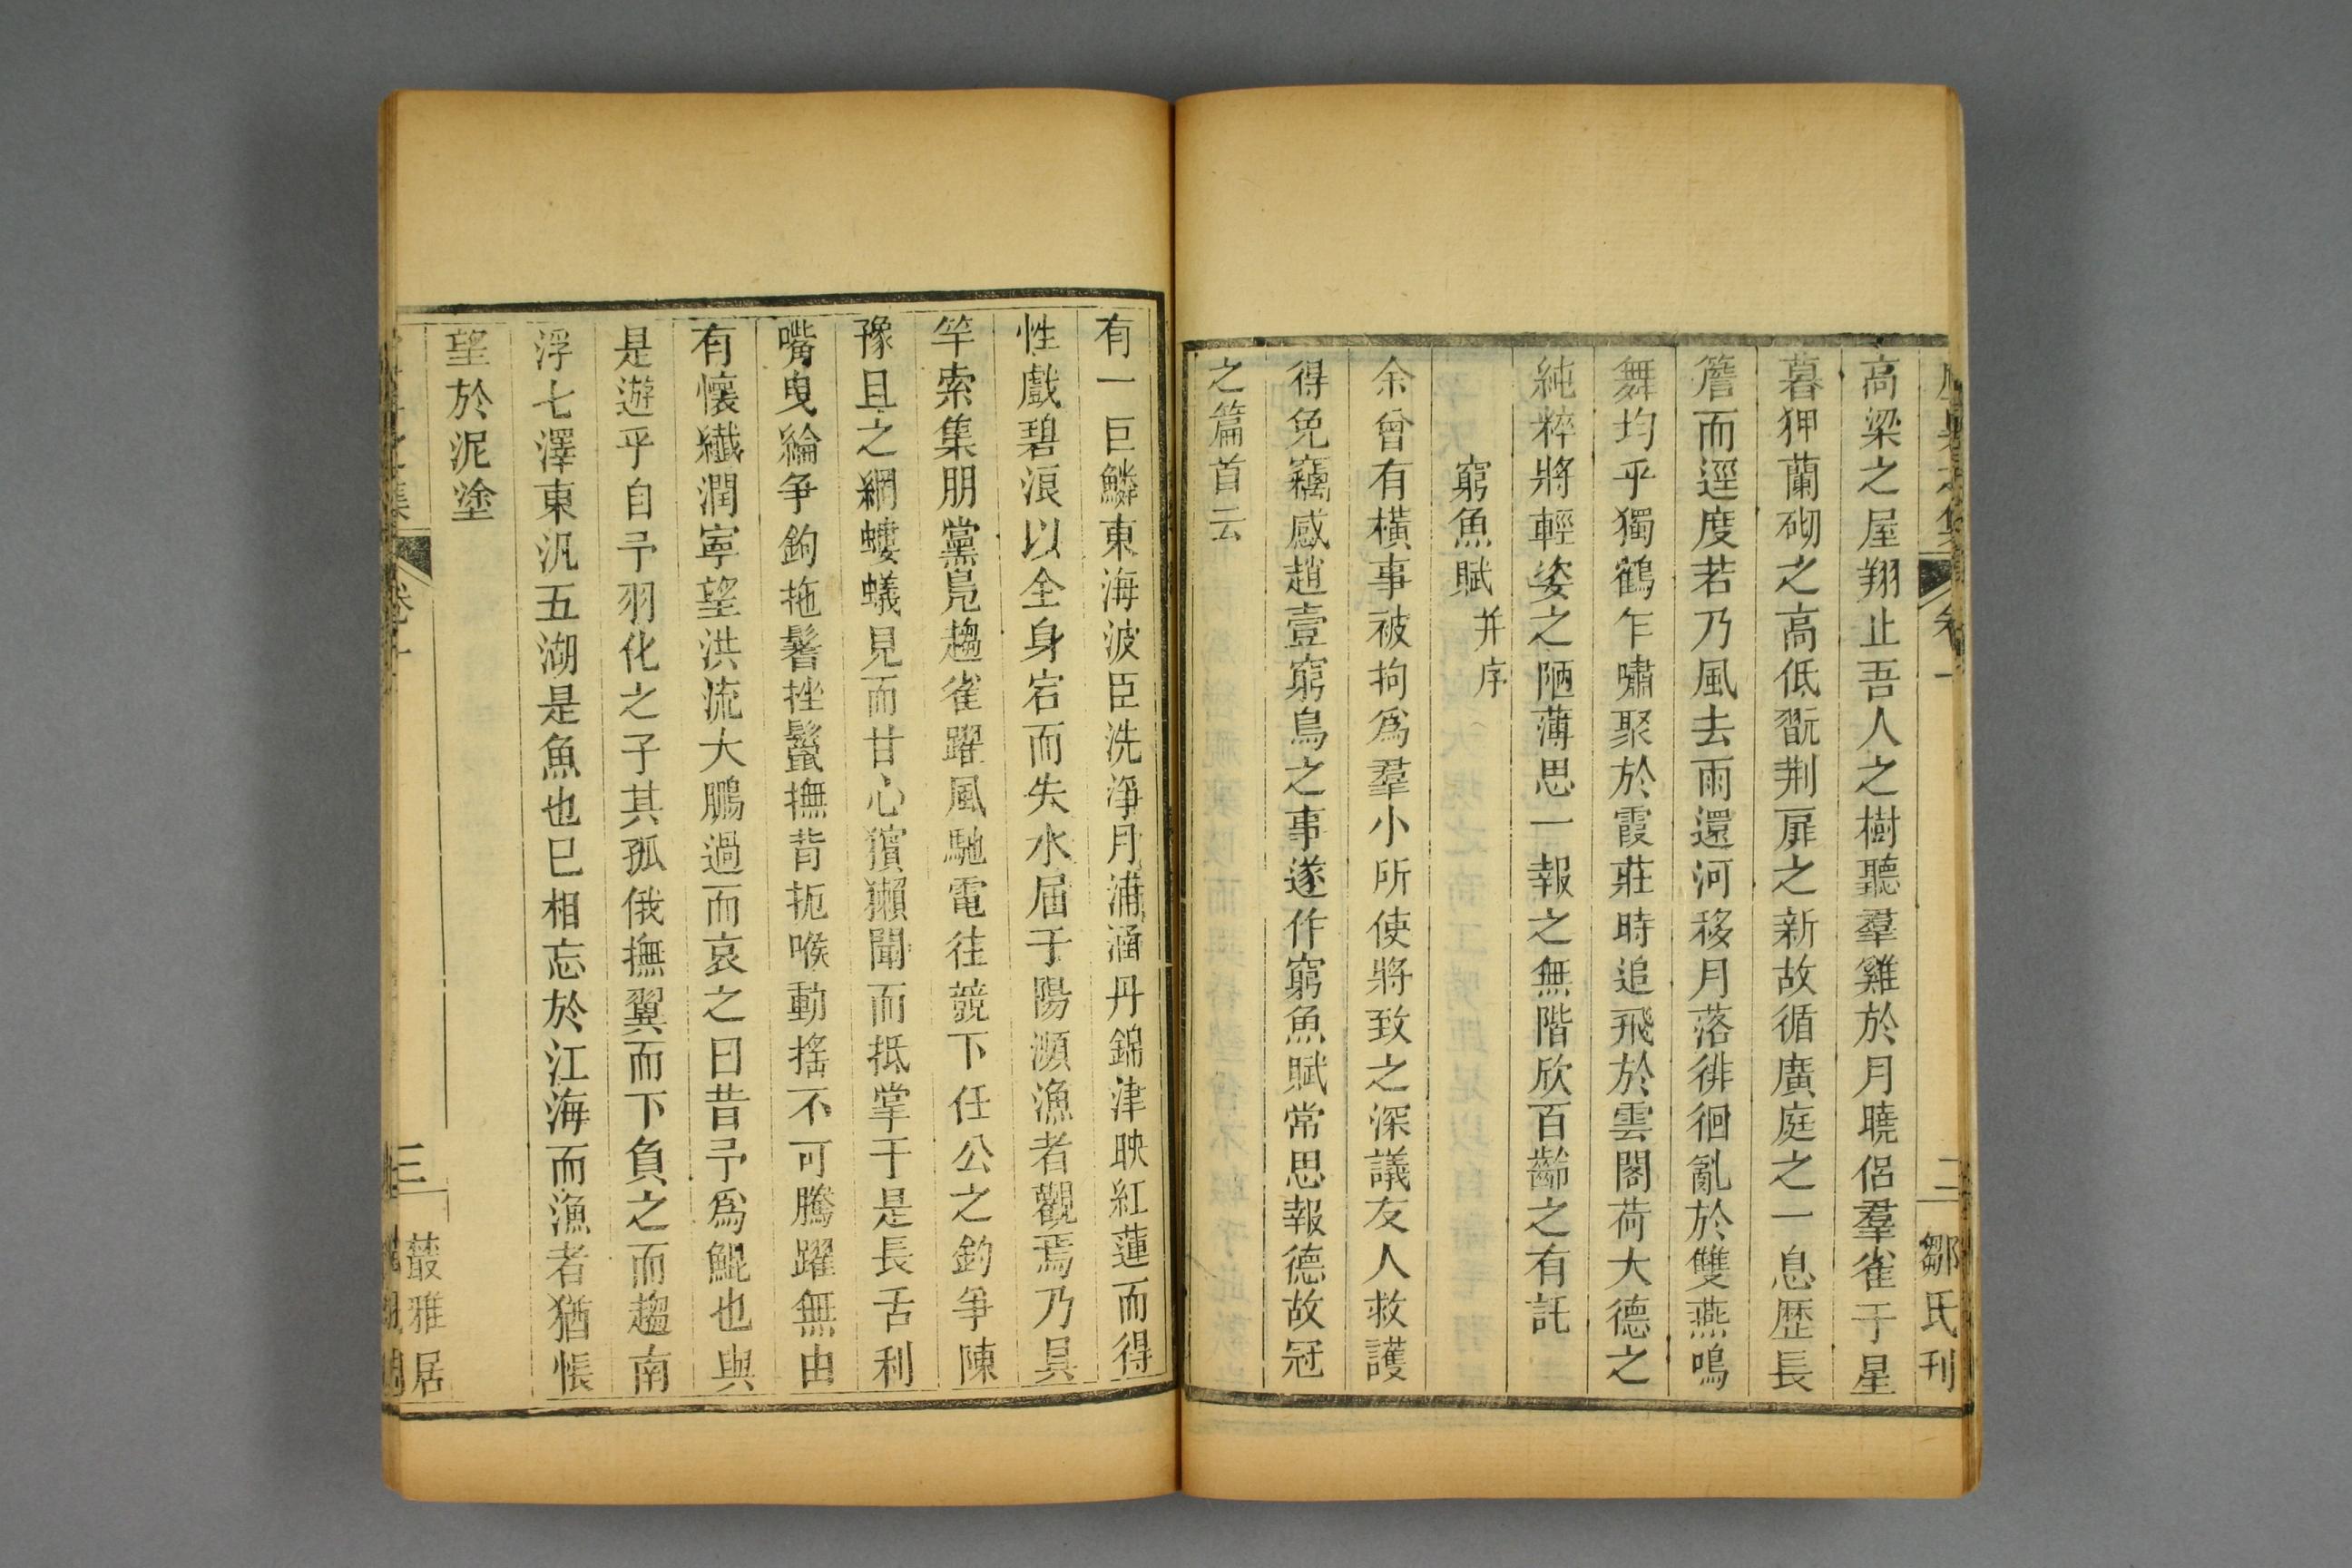 高梁之屋翔止吾人之樹聽羣雞於月曉侶羣雀于星
暮狎蘭砌之高低翫荆扉之新故循廣庭之一息歷長
簷而逕度若乃風去雨還河移月落徘徊亂於雙燕鳴
舞均乎獨鶴乍嘯聚於霞莊時追飛於雲閣荷大德之
純粹將輕姿之陋薄思一報之無階欣百齡之有託
窮魚賦并序
余曾有橫事被拘爲羣小所使將致之深議友人救護
得免竊感趙壹窮鳥之事遂作窮魚賦常思報德故冠
之篇首云
有一巨鱗東海波臣洗淨月浦涵丹錦津映紅蓮而得
性戲碧浪以全身宕而失水屆于陽瀕漁者觀焉乃具
竿索集朋黨鳧趨雀躍風馳電往競下任公之釣爭陳
豫且之網螻蟻見而甘心獱獺聞而抵掌于是長舌利
嘴曳綸争鉤拖鬐挫鬣撫背扼喉動搖不可騰躍無由
有懷纖潤寧望洪流大鵬過而哀之曰昔予爲鯤也與
是遊乎自予羽化之子其孤俄撫翼而下負之而趨南
浮七澤東汎五湖是魚也已相忘於江海而漁者猶悵
望於泥塗
卷一
二
鄒氏刊
三
叢雅居